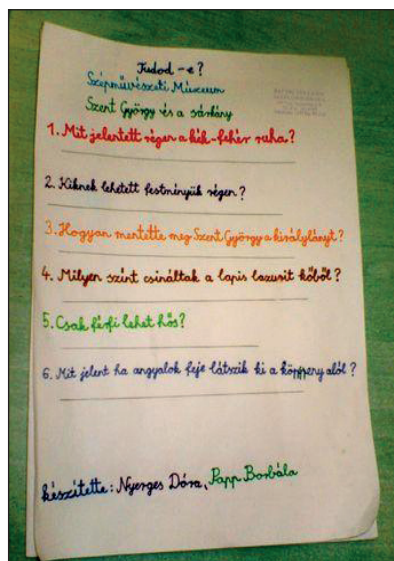 Tudod-e?
Szépművészeti Múzeum
Szent György és a sárkány
1. Mit jelentett régen a kék-fehér ruha?
2. Kiknek lehetett festményük régen?
3. Hogyan mentette meg Szent György a királylányt?
4. Milyen színt csináltak a lapis lazusit kőből?
5. Csak férfi lehet hős?
6. Mit jelent ha angyalok feje látszik ki a köppeny alól?
készítette: Nyerges Dóra, Papp Borbála